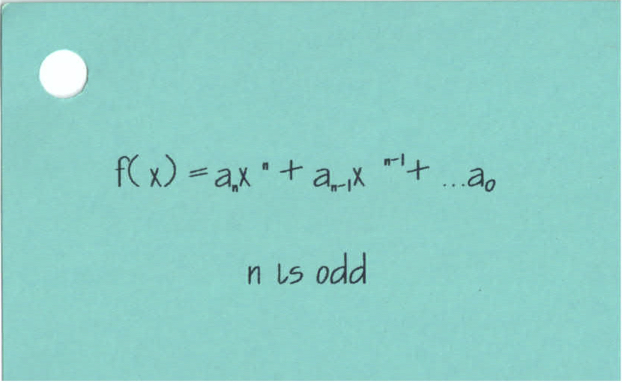 f(x) = aₙxⁿ + aₙ₋₁xⁿ⁻¹ + ...a₀
n is odd